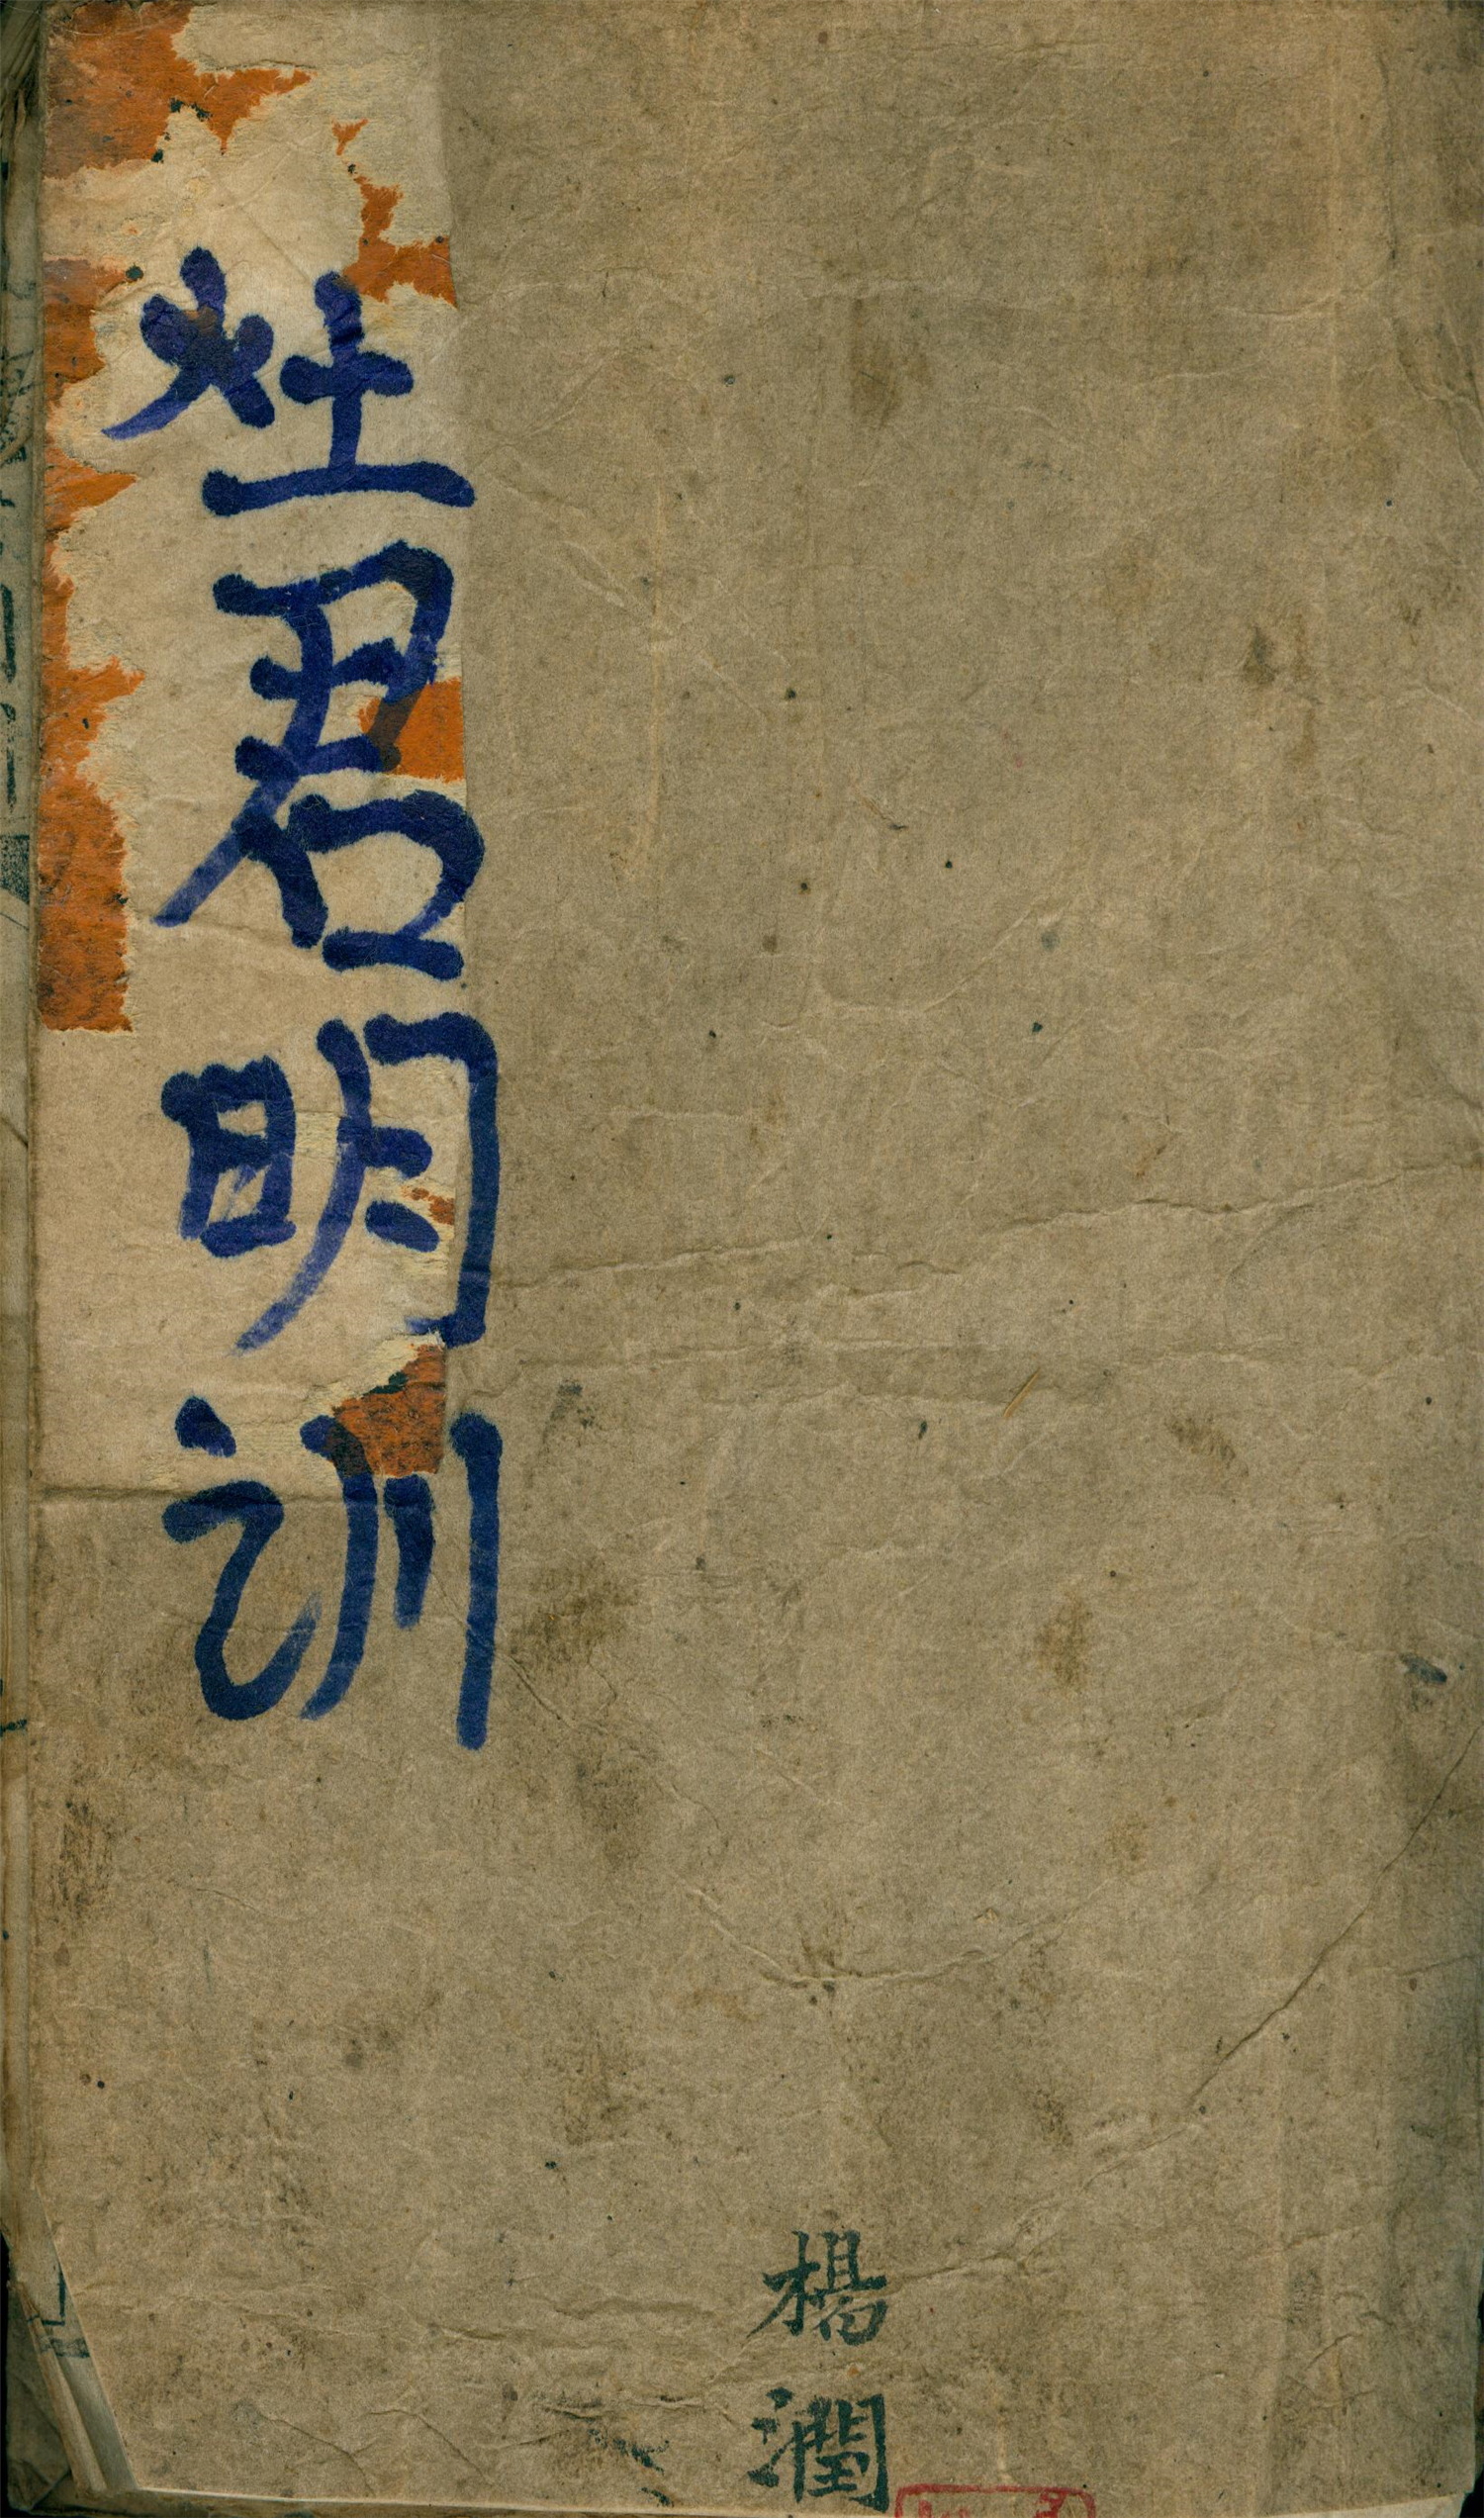 灶君明训
楊潤